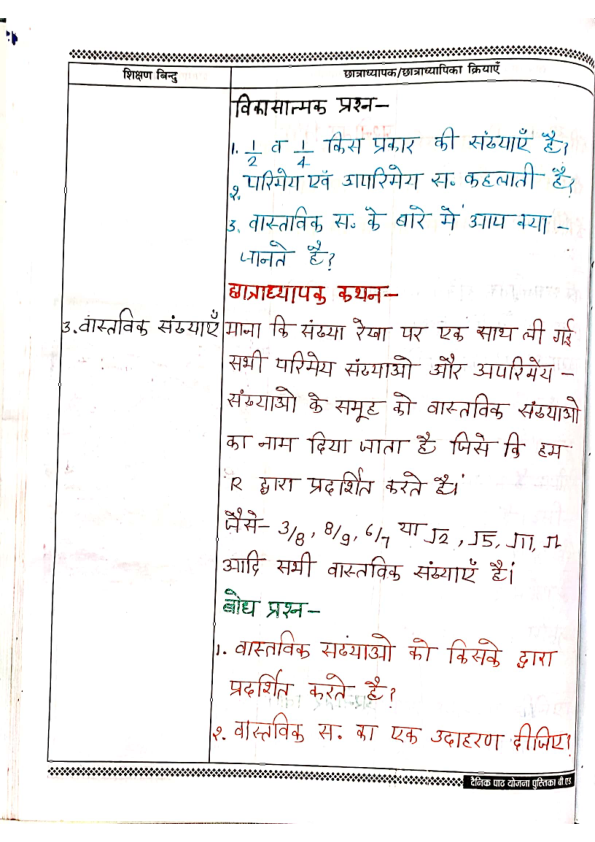 शिक्षण बिन्दु
छात्राध्यापक/छात्राध्यापिका क्रियाएँ
विकासात्मक प्रश्न–
1. 1/2 व 1/4 किस प्रकार की संख्याएँ है?
2. परिमेय एवं अपरिमेय स. कहलाती है?
3. वास्तविक स. के बारे में आप क्या –
जानते है?
छात्राध्यापक कथन–
3. वास्तविक संख्याएँ
माना कि संख्या रेखा पर एक साथ ली गई
सभी परिमेय संख्याओ और अपरिमेय –
संख्याओ के समूह को वास्तविक संख्याओ
का नाम दिया जाता है जिसे कि हम
R द्वारा प्रदर्शित करते है।
जैसे– 3/8, 8/9, 6/7 या √2, √5, √11,
आदि सभी वास्तविक संख्याएँ है।
बोध प्रश्न–
1. वास्तविक सख्ंयाओ को किसके द्वारा
प्रदर्शित करते है?
2. वास्तविक स. का एक उदाहरण दीजिए।
दैनिक पाठ योजना पुस्तिका बी एड